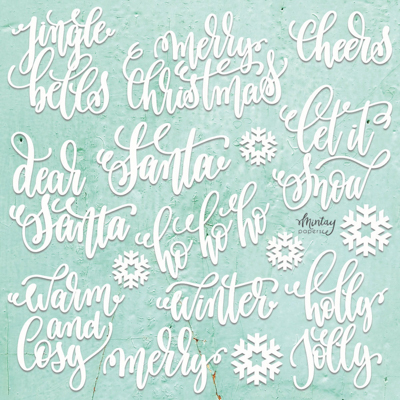 jingle
bells
merry
Christmas
Cheers
let it
snow
dear
Santa
Santa
ho ho ho
Mintay
papers
warm
and
Cosy
winter
merry
holly
Jolly